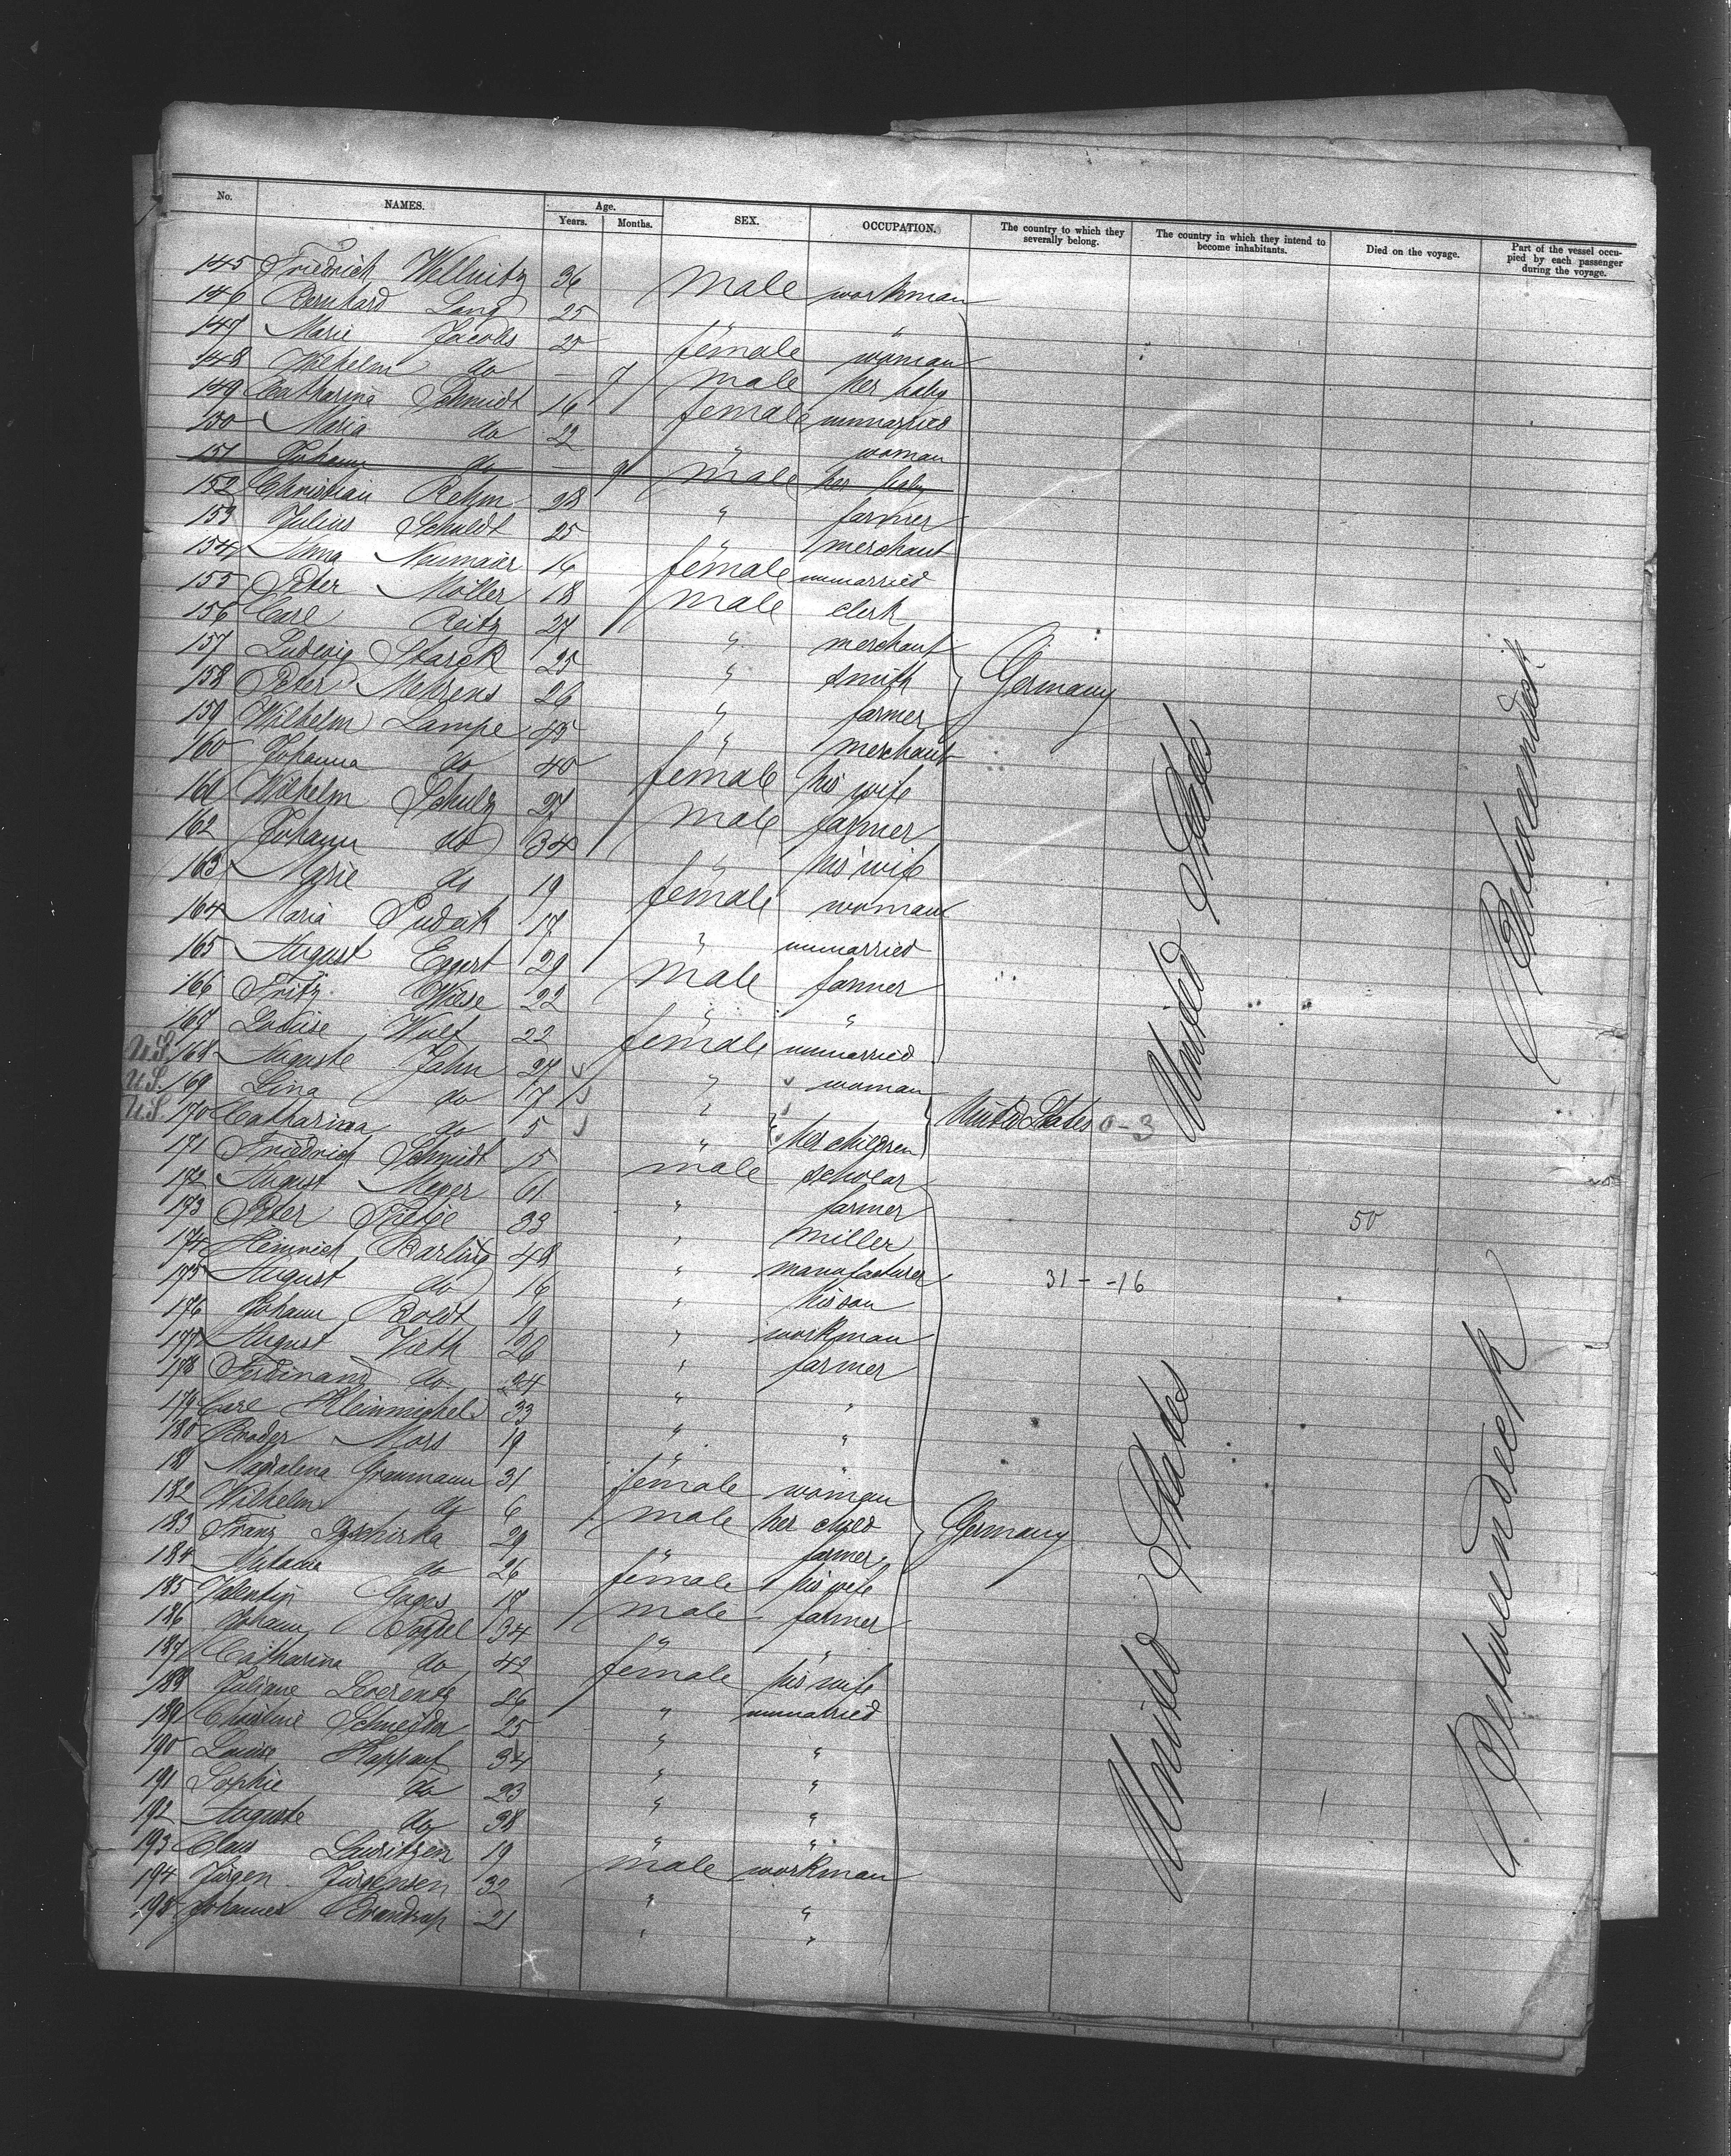 No. NAMES. Age. Years. Months. SEX. OCCUPATION. The country to which they severally belong. The country in which they intend to become inhabitants. Died on the voyage. Part of the vessel occupied by each passenger during the voyage.
145 Friedrich Wellnitz 36 male workman
146 Bernhard Lang 25 "
147 Marie Jacobs 25 female woman
148 Wilhelm do — 7 male her baby
149 Catharina Schmidt 16 female unmarried
150 Maria do 22 " woman
151 Johann do — 9 male her baby
152 Christian Rehm 28 " farmer
153 Julius Schuldt 25 " merchant
154 Anna Naumaier 16 female unmarried
155 Peter Möller 18 male clerk
156 Carl Reitz 27 " merchant
157 Ludwig Starck 25 " smith
158 Peter Mehrens 26 " farmer
159 Wilhelm Lampe 45 " merchant
160 Johanna do 40 female his wife
161 Wilhelm Schulz 27 male farmer
162 Johann do 34 " his wife
163 Marie do 19 female woman
164 Maria 17 " unmarried
165 August Eggert 29 male farmer
166 Fritz Wiese 22 " "
167 Louise Wulf 22 female unmarried
U.S. 168 Auguste Jahn 27 " woman
U.S. 169 Lina do 7 "
U.S. 170 Catharina do 5 " her children
171 Friedrich Schmidt 15 male scholar
172 August Meyer 61 " farmer
173 Peter Tietje 33 " miller
174 Heinrich Barling 48 " manufacturer
175 August do 16 " his son
176 Johann Boldt 19 " workman
177 August Voth 26 " farmer
178 Ferdinand do 24 " "
179 Carl Kleinmichel 33 " "
180 Broder Mors 19 " "
181 Magdalena Graumann 31 female woman
182 Wilhelm do 6 male her child
183 Franz 29 " farmer
184 do 26 female his wife
185 Valentin Gagas 17 male farmer
186 Johann Toppel 34 " "
187 Catharina do 42 female his wife
188 Juliane Lorentz 26 " unmarried
189 Christine Schneider 25 " "
190 Louise Kappauf 34 " "
191 Sophie do 23 " "
192 Auguste do 38 " "
193 Claus Lauritzen 19 male workman
194 Jürgen Jürgensen 32 " "
195 Johannes Brandrup 21 " "
Germany
United States 0-3
31 - -16
Germany
United States
United States
50
Betweendeck
Betweendeck